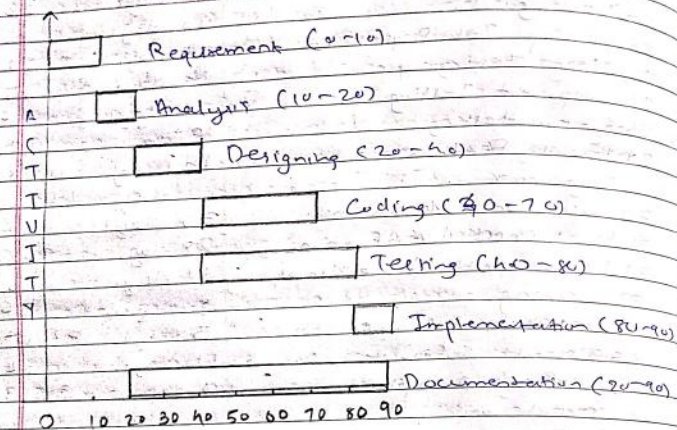 Requirement (0-10)
Analysis (10-20)
Designing (20-40)
Coding (40-70)
Testing (40-80)
Implementation (80-90)
Documentation (20-90)
ACTIVITY
0 10 20 30 40 50 60 70 80 90